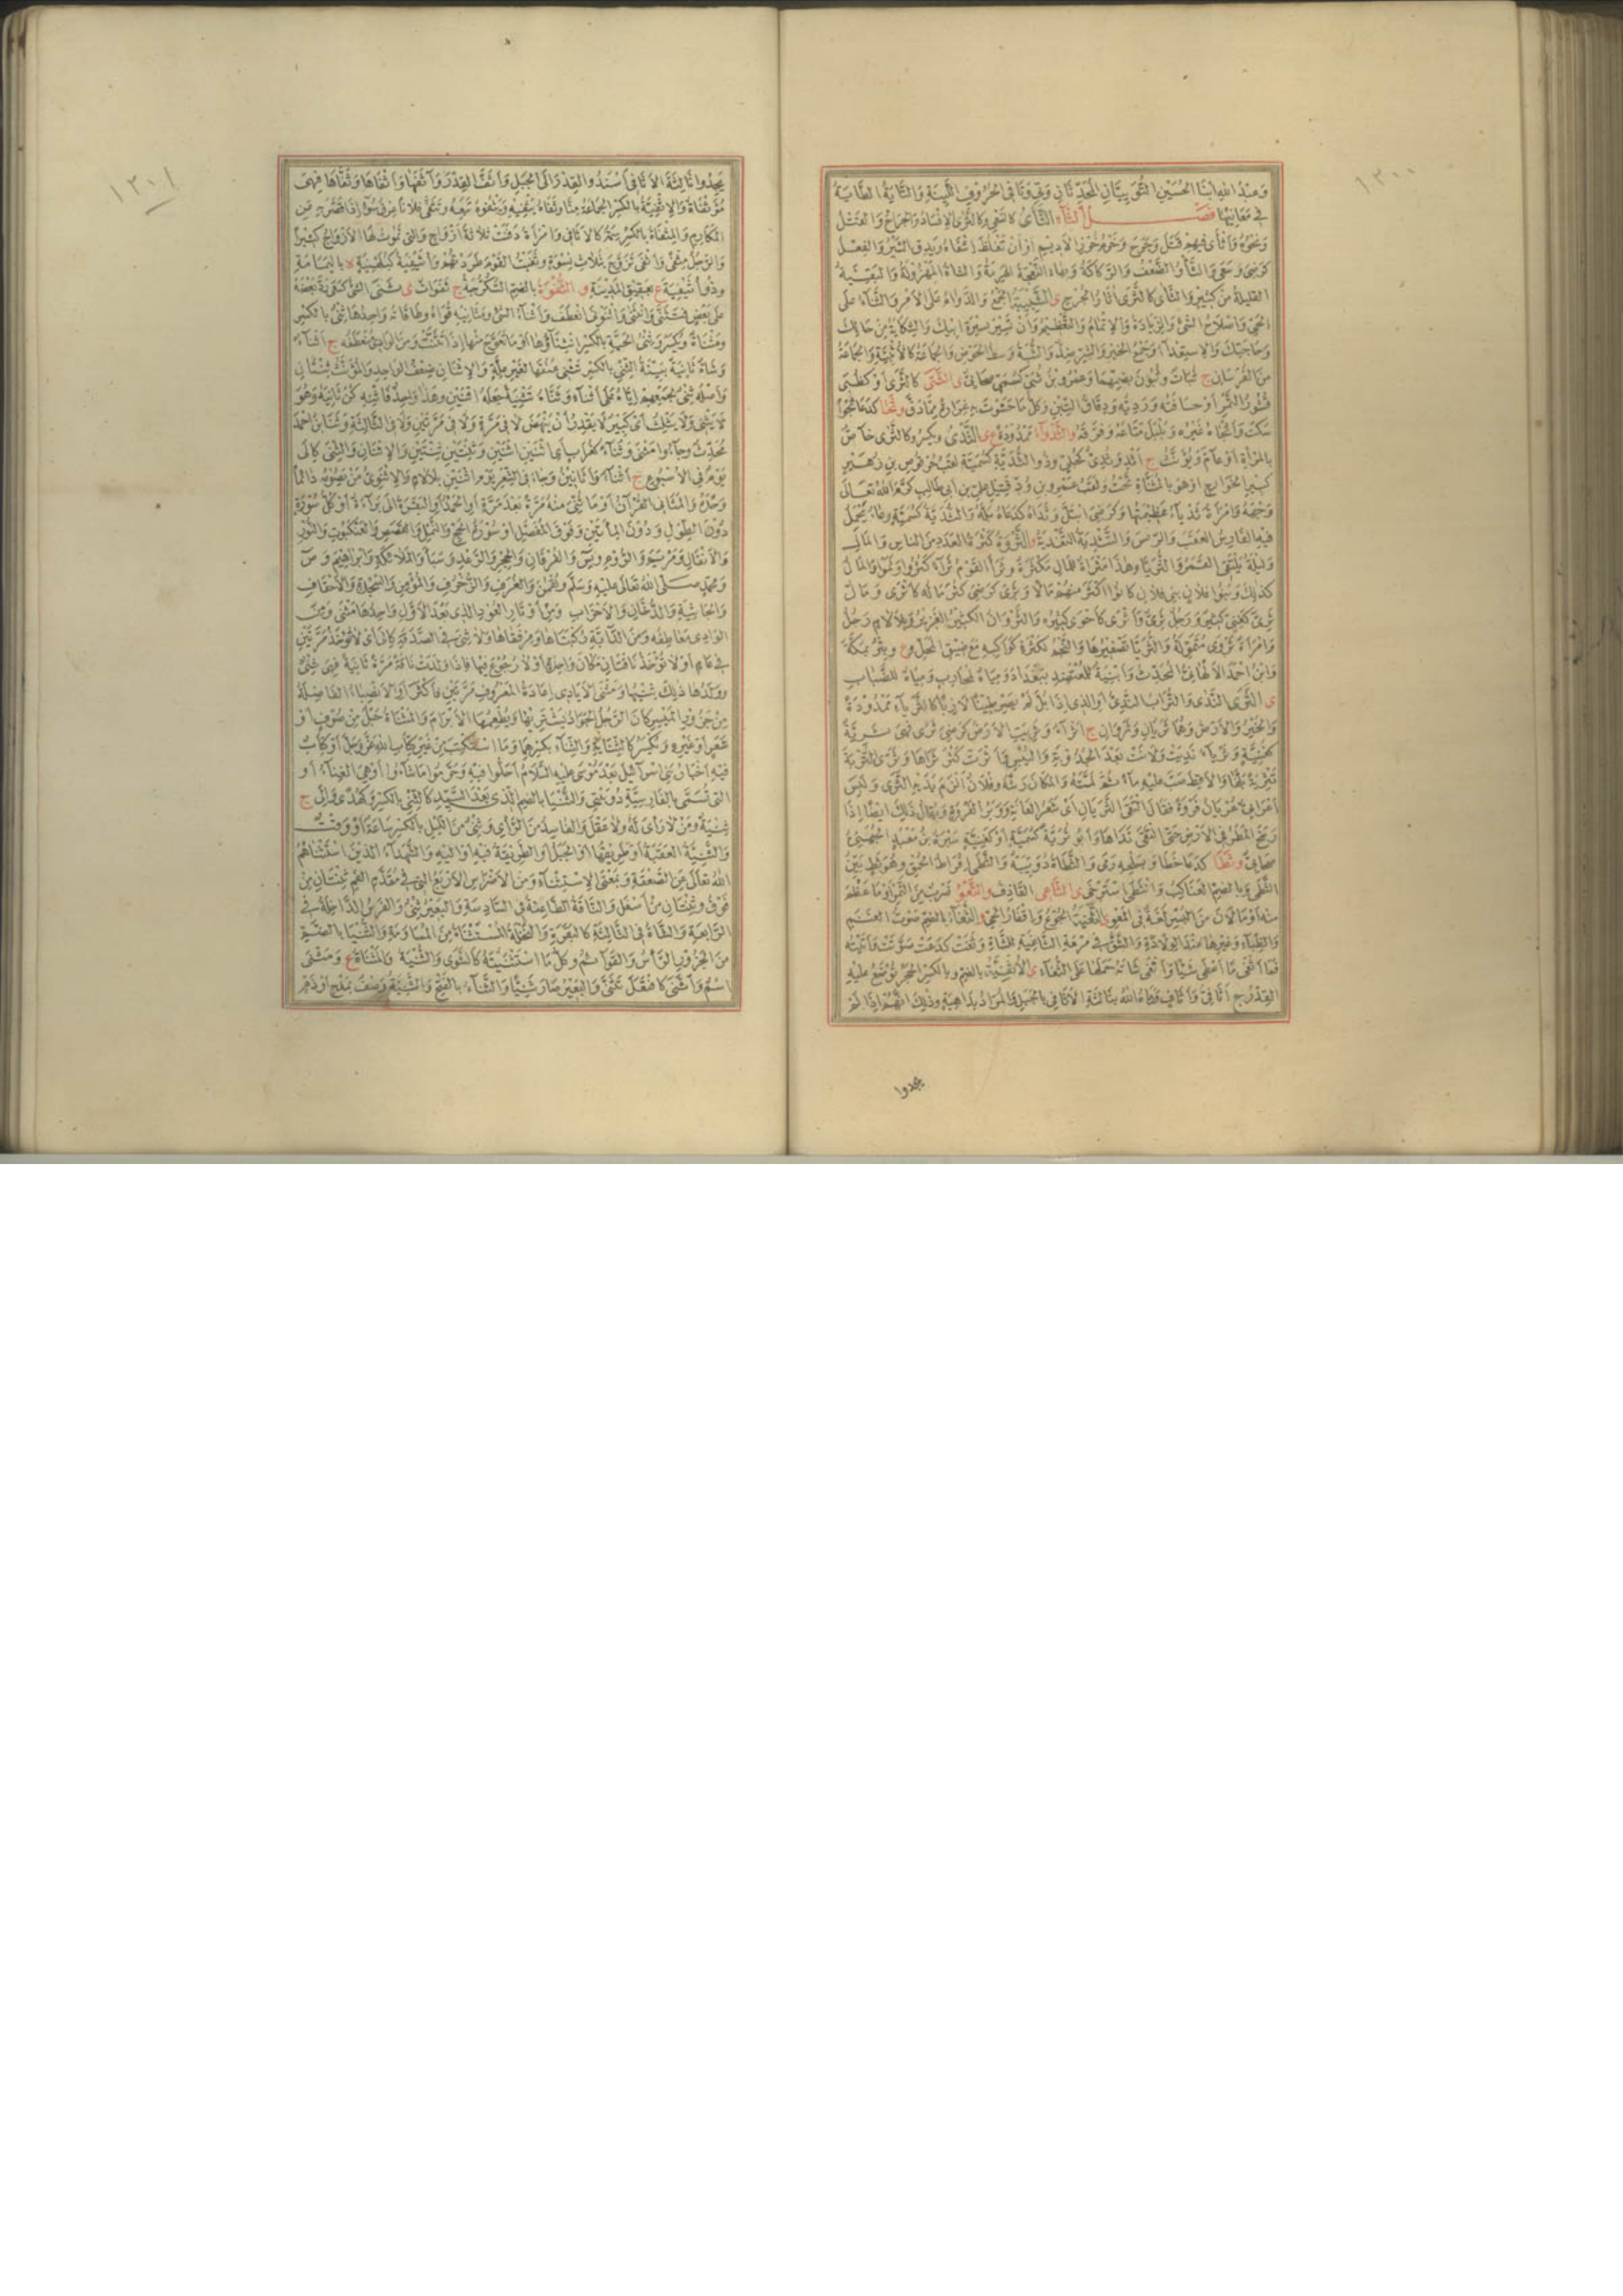 ١٢٠٠
وَعَبْدُ اللهِ ابْنَا الحُسَيْنِ التُّوَيِيَّانِ المُحَدِّثَانِ وَفِي وَتَا فى الحُرُوفِ اللَّيِّنَةِ وَالتَّايَةُ الطَّايَةُ
فِي مَعَانِيهَا فَصْلُ الثَّاءِ الثَّأْىُ كَالسَّعْىِ وَكَالثَّرَى الإِفْسَادُ وَالجِرَاحُ وَالقَتْلُ
وَنَحْوُهُ وَأَثْأَى فِيهِمْ قَتَلَ وَجَرَحَ وَخَرْمُ خَرَزِ الأَدِيمِ أَوْ أَنْ تَغْلُظَ إِشْفَاهُ وَيَدِقَّ السَّيْرُ وَالفِعْلُ
كَرَضِىَ وَسَعَى وَالثَّأْوُ الضَّعْفُ وَالرَّكَاكَةُ وَبِهَاءٍ النَّعْجَةُ الهَرِمَةُ وَالشَّاةُ المَهْزُولَةُ وَالبَقِيَّةُ
القَلِيلَةُ مِنْ كَثِيرٍ وَالثَّأَى كَالثَّرَى آثَارُ الجُرْحِ ى التَّثْبِيَةُ الجَمْعُ وَالدَّوَامُ عَلَى الأَمْرِ وَالثَّنَاءُ عَلَى
الحَىِّ وَإِصْلَاحُ الشَّىْءِ وَالزِّيَادَةُ وَالإِتْمَامُ وَالتَّعْظِيمُ وَأَنْ تَسِيرَ بِسِيرَةِ أَبِيكَ وَالشِّكَايَةُ مِنْ حَالِكَ
وَحَاجَتِكَ وَالاسْتِعْدَاءُ وَجَمْعُ الخَيْرِ وَالشَّرِّ ضِدٌّ وَالثُّبَةُ وَسَطُ الحَوْضِ وَالجَمَاعَةُ كَالأُثْبِيَّةِ وَالجَمَاعَةُ
مِنَ الفُرْسَانِ ج ثُبَاتٌ وَثُبُونَ بِضَمِّهِمَا وَعَمْرُو بْنُ ثُبَىٍّ كَسُمَىٍّ صَحَابِىٌّ ى الثَّتَى كَالثَّرَى أَوْ كَظَبْىٍ
قُشُورُ التَّمْرِ أَوْ حُسَافَتُهُ وَرَدِيُّهُ وَدِقَاقُ التِّبْنِ وَكُلُّ مَا حَشَوْتَ بِهِ غِرَارَةً مِمَّا دَقَّ و ثَجَا كَدَعَا ثَجْوًا
سَكَتَ وَأَثْجَاهُ غَيْرُهُ وَبَلْبَلَ مَتَاعَهُ وَفَرَّقَهُ و الثَّدْوَاءُ مَمْدُودَةً ع ى الثَّدْىُ وَيُكْسَرُ وَكَالثَّرَى خَاصٌّ
بِالمَرْأَةِ أَوْ عَامٌّ وَيُؤَنَّثُ ج أَثْدٍ وَثُدِىٌّ كَحُلِىٍّ وَذُو الثُّدَيَّةِ كَسُمَيَّةَ لَقَبُ حُرْقُوصِ بْنِ زُهَيْرٍ
كَبِيرِ الخَوَارِجِ أَوْ هُوَ بِالمُثَنَّاةِ تَحْتُ وَلَقَبُ عَمْرِو بْنِ وُدٍّ قَتِيلِ عَلِىِّ بْنِ أَبِى طَالِبٍ كَرَّمَ اللهُ تَعَالَى
وَجْهَهُ وَامْرَأَةٌ ثَدْيَاءُ عَظِيمَتُهَا وَكَرَضِىَ ابْتَلَّ وَثَدَاهُ كَدَعَاهُ بَلَّهُ وَالثُّدَيَّةُ كَسُمَيَّةَ وِعَاءٌ يَحْمِلُ
فِيهِ الفَارِسُ العَقَبَ وَالرِّيشَ وَالتَّثْدِيَةُ التَّغْذِيَةُ و الثَّرْوَةُ كَثْرَةُ العَدَدِ مِنَ النَّاسِ وَالمَالِ
وَلَيْلَةٌ يَلْتَقِى القَمَرُ وَالثُّرَيَّا وَهَذَا مَثْرَاةٌ لِلمَالِ مَكْثَرَةٌ وَثَرَا القَوْمُ ثَرَاءً كَثُرُوا وَنَمَوْا وَالمَالُ
كَذَلِكَ وَبَنُو فُلَانٍ بَنِى فُلَانٍ كَانُوا أَكْثَرَ مِنْهُمْ مَالًا وَثَرِىَ كَرَضِىَ كَثُرَ مَالُهُ كَأَثْرَى وَمَالٌ
ثَرِىٌّ كَغَنِىٍّ كَثِيرٌ وَرَجُلٌ ثَرِىٌّ وَأَثْرَى كَأَحْوَى كَثِيرُهُ وَالثَّرْوَانُ الكَثِيرُ الغَزِيرُ وَبِلَا لَامٍ رَجُلٌ
وَامْرَأَةٌ ثَرْوَى مُتَمَوِّلَةٌ وَالثُّرَيَّا تَصْغِيرُهَا وَالنَّجْمُ لِكَثْرَةِ كَوَاكِبِهِ مَعَ ضِيقِ المَحَلِّ و ع وَبِئْرٌ بِمَكَّةَ
وَابْنُ أَحْمَدَ الأَلْهَانِىُّ المُحَدِّثُ وَأَبْنِيَةٌ لِلمُعْتَضِدِ بِبَغْدَادَ وَمِيَاهٌ لِمُحَارِبٍ وَمِيَاهٌ لِلضِّبَابِ
ى الثَّرَى النَّدَى وَالتُّرَابُ النَّدِىُّ أَوِ الَّذِى إِذَا بُلَّ لَمْ يَصِرْ طِينًا لَازِبًا كَالثَّرْيَاءِ مَمْدُودَةً
وَالخَيْرُ وَالأَرْضُ وَهُمَا ثَرَيَانِ وَثَرَوَانِ ج أَثْرَاءٌ وَثَرِيَتِ الأَرْضُ كَرَضِىَ ثَرًى فَهِىَ ثَرِيَّةٌ
كَغَنِيَّةٍ وَثَرْيَاءُ نَدِيَتْ وَلَانَتْ بَعْدَ الجُدُوبَةِ وَاليُبْسِ وَأَثْرَتْ كَثُرَ ثَرَاهَا وَثَرَّى التُّرْبَةَ
تَثْرِيَةً بَلَّهَا وَالأَقِطَ صَبَّ عَلَيْهِ مَاءً ثُمَّ لَتَّهُ وَالمَكَانَ رَشَّهُ وَفُلَانٌ أَلْزَمَ يَدَيْهِ الثَّرَى وَلَبِسَ
أَعْرَابِىٌّ عُرْيَانُ فَرْوَةً فَقَالَ التَقَى الثَّرَيَانِ أَىْ شَعَرُ العَانَةِ وَوَبَرُ الفَرْوَةِ وَيُقَالُ ذَلِكَ أَيْضًا إِذَا
رَسَخَ المَطَرُ فِى الأَرْضِ حَتَّى التَقَى نَدَاهَا وَأَبُو ثُرَيَّةَ كَسُمَيَّةَ أَوْ كَغَنِيَّةٍ سَبْرَةُ بْنُ مَعْبَدٍ الجُهَنِىُّ
صَحَابِىٌّ و ثَطَا كَدَعَا خَطَا وَبِسَلْحِهِ رَمَى وَالثَّطَاةُ دُوَيْبَةٌ وَالثَّطَى إِفْرَاطُ الحُمْقِ وَهُوَ ثَطٍ بَيِّنُ
الثَّطَى وَبِالضَّمِّ العَنَاكِبُ وَانْثَطَى اسْتَرْخَى ى الثَّاعِى القَاذِفُ و الثَّعْوُ ضَرْبٌ مِنَ التَّمْرِ أَوْ مَا عَظُمَ
مِنْهُ أَوْ مَا لَانَ مِنَ البُسْرِ لُغَةٌ فِى المَعْوِ ى الثَّغْيَةُ الجُوعُ وَإِقْفَارُ الحَىِّ و الثُّغَاءُ بِالضَّمِّ صَوْتُ الغَنَمِ
وَالظِّبَاءِ وَغَيْرِهَا عِنْدَ الوِلَادَةِ وَالشَّقُّ فِى مَرَمَّةِ الشَّاةِ وَالثَّاغِيَةُ الشَّاةُ وَثَغَتْ كَدَعَتْ صَوَّتَتْ وَأَتَيْتُهُ
فَمَا أَثْغَى مَا أَعْطَى شَيْئًا وَأَثْغَى شَاتَهُ حَمَلَهَا عَلَى الثُّغَاءِ ى الأُثْفِيَّةُ بِالضَّمِّ وَبِالكَسْرِ الحَجَرُ تُوضَعُ عَلَيْهِ
القِدْرُ ج أَثَافِىُّ وَأَثَافٍ وَرَمَاهُ اللهُ بِثَالِثَةِ الأَثَافِى بِالجَبَلِ وَالمُرَادُ بِدَاهِيَةٍ وَذَلِكَ أَنَّهُمْ إِذَا لَمْ
يجدوا
١٢٠١
يَجِدُوا ثَالِثَةَ الأَثَافِى أَسْنَدُوا القِدْرَ إِلَى الجَبَلِ وَأَثَفَ القِدْرَ وَآثَفَهَا وَأَثْفَاهَا وَثَفَّاهَا فَهِىَ
مُؤَثْفَاةٌ وَالإِثْفِيَّةُ بِالكَسْرِ الجَمَاعَةُ مِنَّا وَثَفَاهُ يَثْفِيهِ وَيَثْفُوهُ تَبِعَهُ وَتَثَفَّى فُلَانًا عِرْقُ سُوءٍ إِذَا قَصَّرَ بِهِ عَنِ
المَكَارِمِ وَالمِثْفَاةُ بِالكَسْرِ سِمَةٌ كَالأَثَافِى وَامْرَأَةٌ دَفَنَتْ ثَلَاثَةَ أَزْوَاجٍ وَالَّتِى تَمُوتُ لَهَا الأَزْوَاجُ كَثِيرًا
وَالرَّجُلُ مِثْفًى وَأَثْفَى تَزَوَّجَ بِثَلَاثِ نِسْوَةٍ وَثُفِيَتِ القَوْمُ طَرَدْتُهُمْ وَأُثَيْفِيَةُ كَبُلَهْنِيَةٍ ة بِاليَمَامَةِ
وَذُو أُثَيْفِيَةَ ع بِعَقِيقِ المَدِينَةِ و الثُّقْوَةُ بِالضَّمِّ السُّكُرُّجَةُ ج ثُقَوَاتٌ ى ثَنَى الشَّىْءَ كَسَعَى رَدَّ بَعْضَهُ
عَلَى بَعْضٍ فَتَثَنَّى وَانْثَنَى وَاثْنَوْنَى انْعَطَفَ وَأَثْنَاءُ الشَّىْءِ وَمَثَانِيهِ قُوَاهُ وَطَاقَاتُهُ وَاحِدُهَا ثِنْىٌ بِالكَسْرِ
وَمَثْنَاةٌ وَيُكْسَرُ وَثِنْىُ الحَيَّةِ بِالكَسْرِ انْثِنَاؤُهَا أَوْ مَا تَعَوَّجَ مِنْهَا إِذَا تَثَنَّتْ وَمِنَ الوَادِى مُنْعَطَفُهُ ج أَثْنَاءٌ
وَشَاةٌ ثَانِيَةٌ بَيِّنَةُ الثِّنْىِ بِالكَسْرِ تَثْنِى عُنُقَهَا لِغَيْرِ عِلَّةٍ وَالاثْنَانِ ضِعْفُ الوَاحِدِ وَالمُؤَنَّثُ ثِنْتَانِ
وَأَصْلُهُ ثِنْىٌ لِجَمْعِهِمْ إِيَّاهُ عَلَى أَثْنَاءٍ وَثَنَّاهُ تَثْنِيَةً جَعَلَهُ اثْنَيْنِ وَهَذَا وَاحِدٌ فَاثْنِهِ كُنْ ثَانِيَهُ وَهُوَ
لَا يَثْنِى وَلَا يَثْلِثُ أَىْ كَبِيرٌ لَا يَقْدِرُ أَنْ يَنْهَضَ لَا فِى مَرَّةٍ وَلَا فِى مَرَّتَيْنِ وَلَا فِى الثَّالِثَةِ وَثَنَا بْنُ أَحْمَدَ
مُحَدِّثٌ وَجَاءُوا مَثْنَى وَثُنَاءَ كَغُرَابٍ أَىِ اثْنَيْنِ اثْنَيْنِ وَثِنْتَيْنِ ثِنْتَيْنِ وَالاثْنَانِ وَالثِّنَى كَإِلَى
يَوْمٌ فِى الأُسْبُوعِ ج أَثْنَاءٌ وَأَثَانِينُ وَجَاءَ فِى الشِّعْرِ يَوْمُ اثْنَيْنِ بِلَا لَامٍ وَالاثْنَوِىُّ مَنْ يَصُومُهُ دَائِمًا
وَحْدَهُ وَالمَثَانِى القُرْآنُ أَوْ مَا ثُنِّىَ مِنْهُ مَرَّةً بَعْدَ مَرَّةٍ أَوِ الحَمْدُ أَوِ البَقَرَةُ إِلَى بَرَاءَةَ أَوْ كُلُّ سُورَةٍ
دُونَ الطُّوَلِ وَدُونَ المِأَتَيْنِ وَفَوْقَ المُفَصَّلِ أَوْ سُورَةُ الحَجِّ وَالنَّمْلِ وَالقَصَصِ وَالعَنْكَبُوتِ وَالنُّورِ
وَالأَنْفَالِ وَمَرْيَمَ وَالرُّومِ وَيس وَالفُرْقَانِ وَالحِجْرِ وَالرَّعْدِ وَسَبَأَ وَالمَلَائِكَةِ وَإِبْرَاهِيمَ وَص
وَمُحَمَّدٍ صَلَّى اللهُ تَعَالَى عَلَيْهِ وَسَلَّمَ وَلُقْمَانَ وَالغُرَفِ وَالزُّخْرُفِ وَالمُؤْمِنِ وَالسَّجْدَةِ وَالأَحْقَافِ
وَالجَاثِيَةِ وَالدُّخَانِ وَالأَحْزَابِ وَمِنْ أَوْتَارِ العُودِ الَّذِى بَعْدَ الأَوَّلِ وَاحِدُهَا مَثْنًى وَمِنَ
الوَادِى مَعَاطِفُهُ وَمِنَ الدَّابَّةِ رُكْبَتَاهَا وَمِرْفَقَاهَا وَلَا ثِنَى فِى الصَّدَقَةِ كَإِلَى أَىْ لَا تُؤْخَذُ مَرَّتَيْنِ
فِى عَامٍ أَوْ لَا تُؤْخَذُ نَاقَتَانِ مَكَانَ وَاحِدَةٍ أَوْ لَا رُجُوعَ فِيهَا وَإِذَا وَلَدَتْ نَاقَةٌ مَرَّةً ثَانِيَةً فَهِىَ ثِنْىٌ
وَوَلَدُهَا ذَلِكَ ثِنْيُهَا وَمَثْنَى الأَيَادِى إِعَادَةُ المَعْرُوفِ مَرَّتَيْنِ فَأَكْثَرَ أَوِ الأَنْصِبَاءُ الفَاضِلَةُ
مِنْ جَزُورِ المَيْسِرِ كَانَ الرَّجُلُ الجَوَادُ يَشْتَرِيهَا وَيُطْعِمُهَا الأَبْرَامَ وَالمَثْنَاةُ حَبْلٌ مِنْ صُوفٍ أَوْ
شَعَرٍ أَوْ غَيْرِهِ وَيُكْسَرُ كَالثِّنَايَةِ وَالثِّنَاءِ بِكَسْرِهِمَا وَمَا اسْتُكْتِبَ مِنْ غَيْرِ كِتَابِ اللهِ عَزَّ وَجَلَّ أَوْ كِتَابٌ
فِيهِ أَخْبَارُ بَنِى إِسْرَآئِيلَ بَعْدَ مُوسَى عَلَيْهِ السَّلَامُ أَحَلُّوا فِيهِ وَحَرَّمُوا مَا شَاءُوا أَوْ هِىَ الغِنَاءُ أَوِ
الَّتِى تُسَمَّى بِالفَارِسِيَّةِ دُو بَيْتِى وَالثُّنْيَانُ بِالضَّمِّ الَّذِى بَعْدَ السَّيِّدِ كَالثِّنْىِ بِالكَسْرِ وَكَهُدًى وَإِلَى ج
ثِنْيَةٌ وَمَنْ لَا رَأْىَ لَهُ وَلَا عَقْلَ وَالفَاسِدُ مِنَ الرَّأْىِ وَثِنْىٌ مِنَ اللَّيْلِ بِالكَسْرِ سَاعَةٌ أَوْ وَقْتٌ
وَالثَّنِيَّةُ العَقَبَةُ أَوْ طَرِيقُهَا أَوِ الجَبَلُ أَوِ الطَّرِيقَةُ فِيهِ أَوْ إِلَيْهِ وَالشُّهَدَاءُ الَّذِينَ اسْتَثْنَاهُمُ
اللهُ تَعَالَى عَنِ الصَّعْقَةِ وَبِمَعْنَى الاسْتِثْنَاءِ وَمِنَ الأَضْرَاسِ الأَرْبَعُ الَّتِى فِى مُقَدَّمِ الفَمِ ثِنْتَانِ مِنْ
فَوْقُ وَثِنْتَانِ مِنْ أَسْفَلَ وَالنَّاقَةُ الطَّاعِنَةُ فِى السَّادِسَةِ وَالبَعِيرُ ثَنِىٌّ وَالفَرَسُ الدَّاخِلَةُ فِى
الرَّابِعَةِ وَالشَّاةُ فِى الثَّالِثَةِ كَالبَقَرَةِ وَالنَّخْلَةُ المُسْتَثْنَاةُ مِنَ المُسَاوَمَةِ وَالثُّنْيَا بِالضَّمِّ
مِنَ الجَزُورِ الرَّأْسُ وَالقَوَائِمُ وَكُلُّ مَا اسْتَثْنَيْتَهُ كَالثَّنْوَى وَالثُّنْيَةُ وَالمُثَنَّاةُ ع وَمَثْنَى
اسْمٌ وَاثَّنَى كَافْتَعَلَ تَثَنَّى وَالبَعِيرُ صَارَ ثَنِيًّا وَالثَّنَاءُ بِالفَتْحِ وَالتَّثْنِيَةُ وَصْفٌ بِمَدْحٍ أَوْ ذَمٍّ